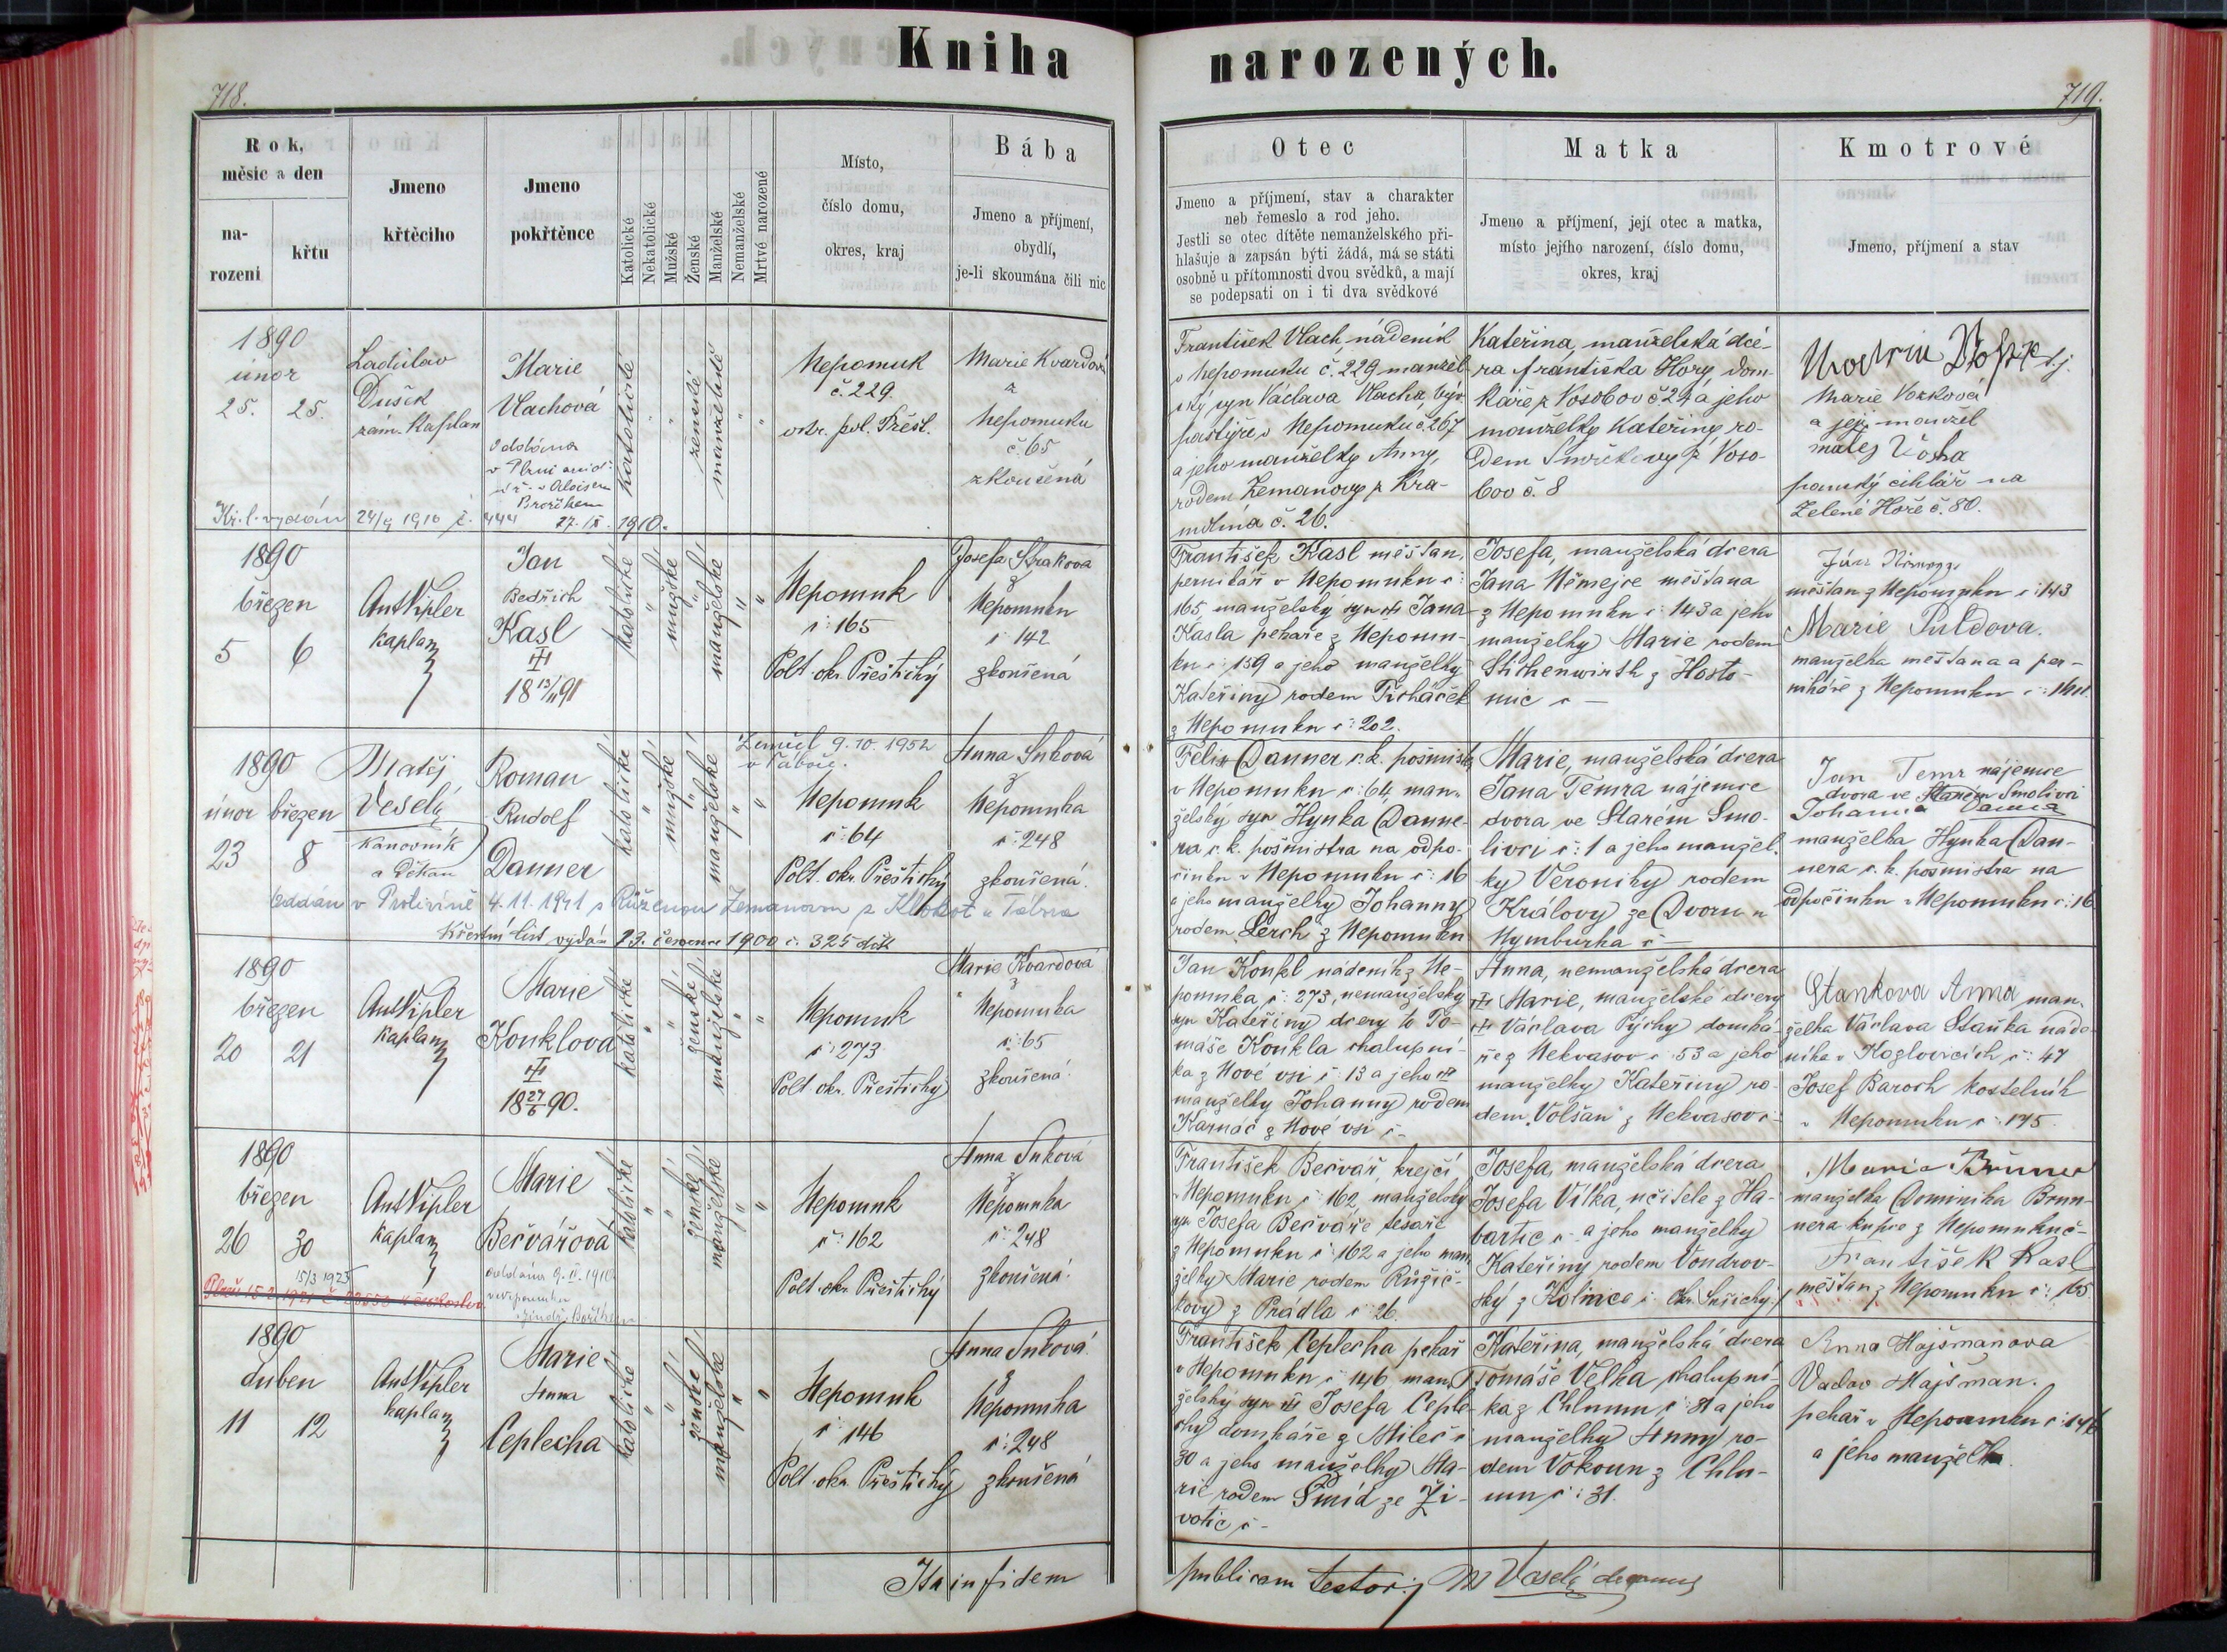 Kniha narozených.
718.
719.
Rok,
měsíc a den
na-
rození
křtu
Jmeno
křtěcího
Jmeno
pokřtěnce
Katolické
Nekatolické
Mužské
Ženské
Manželské
Nemanželské
Mrtvé narozené
Místo,
číslo domu,
okres, kraj
Bába
Jmeno a příjmení,
obydlí,
je-li skoumána čili nic
Otec
Jmeno a příjmení, stav a charakter
neb řemeslo a rod jeho.
Jestli se otec dítěte nemanželského při-
hlašuje a zapsán býti žádá, má se státi
osobně u přítomnosti dvou svědků, a mají
se podepsati on i ti dva svědkové
Matka
Jmeno a příjmení, její otec a matka,
místo jejího narození, číslo domu,
okres, kraj
Kmotrové
Jmeno, příjmení a stav
1890
únor
25. 25.
Ladislav
Dušek
zám. kaplan
Marie
Vlachová
Oddána
v Plzni
s Aloisem
27. IX. 1910.
Kř. l. vydán 24/9 1910 č. 444
katolické
ženské
manželské
Nepomuk
č. 229.
okr. pol. Přešt.
Marie Kvardová
z
Nepomuku
č. 65
zkoušená
František Vlach, nádeník
v Nepomuku č. 229 manžel-
ský syn Václava Vlacha, býv.
pastýře v Nepomuku č. 267
a jeho manželky Anny,
rodem Zemanovy z Kra-
molína č. 26.
Kateřina, manželská dce-
ra Františka Hory, dom-
káře z Vosobov č. 24 a jeho
manželky Kateřiny ro-
dem Smrčkovy z Voso-
bov č. 8
Marie Vosková
a její manžel
panský cihlář na
Zelené Hoře č. 80.
1890
březen
5 6
Ant Vipler
kaplan
Jan
Bedřich
Kasl
18 13/11 91
katolické
mužské
manželské
Nepomuk
č: 165
Polt. okr. Přeštický
Josefa Straková
z
Nepomuku
č 142
zkoušená
František Kasl měšťan,
pernikář v Nepomuku č:
165 manželský syn Jana
Kasla pekaře z Nepomu-
ku č: 139 a jeho manželky
Kateřiny rodem Ticháček
z Nepomuku č: 202.
Josefa, manželská dcera
Jana Němejce měšťana
z Nepomuku č: 143 a jeho
manželky Marie rodem
Stichenwirth z Hosto-
mic č –
měšťan z Nepomuku č: 143
Marie Puldova.
manželka měšťana a per-
nikáře z Nepomuku č:
1890
únor březen
23 8
Matěj
Veselý
kanovník
a děkan
Roman
Rudolf
Danner
katolické
mužské
manželské
Zemřel 9. 10. 1952
v Táboře.
Nepomuk
č: 64
Polt. okr. Přeštický
Anna Suková
z
Nepomuka
č: 248
zkoušená.
oddán v Protivíně 4. 11. 1941 s Růženou Zemanovou z Klokot u Tábora
Křestní list vydán 23. července 1900 č. 325
Felix Danner c. k. pošmistr
v Nepomuku č: 64, man-
želský syn Hynka Danne-
ra c. k. pošmistra na odpo-
činku v Nepomuku č: 16
a jeho manželky Johanny
rodem Lerch z Nepomuku
Marie, manželská dcera
Jana Temra nájemce
dvora ve Starém Smo-
livci č: 1 a jeho manžel-
ky Veroniky rodem
Královy ze Dvoru u
Nymburka č –
Jan Temr nájemce
dvora ve Starém Smolivci
Johanna Danner
manželka Hynka Dan-
nera c. k. pošmistra na
odpočinku v Nepomuku č: 16
1890
březen
20 21
Ant Vipler
kaplan
Marie
Konklova
18 27/6 90.
katolické
ženské
manželské
Nepomuk
č: 273
Polt. okr. Přeštický
Marie Kvardová
z
Nepomuka
č: 65
zkoušená.
Jan Konkl nádeník z Ne-
pomuka č: 273, nemanželský
syn Kateřiny dcery to To-
máše Konkla chalupní-
ka z Nové vsi č: 13 a jeho
manželky Johanny rodem
Karnáč z Nové vsi č –
Anna, nemanželská dcera
Marie, manželské dcery
Václava Pýchy domká-
ře z Nekvasov č: 53 a jeho
manželky Kateřiny ro-
dem Volšan z Nekvasov č:
Stankova Anna man-
želka Václava Staňka náde-
níka v Kozlovicích č: 47
Josef Baroch kostelník
v Nepomuku č: 175.
1890
březen
26 30
Ant Vipler
kaplan
Marie
Bečvářová
oddána 9. II. 1910
v Nepomuku
15/3 1925
katolické
ženské
manželské
Nepomuk
č: 162
Polt. okr. Přeštický
Anna Suková
z
Nepomuka
č: 248
zkoušená.
František Bečvář, krejčí
v Nepomuku č: 162, manželský
syn Josefa Bečváře tesaře
z Nepomuku č: 162 a jeho man-
želky Marie rodem Růžič-
kovy z Prádla č: 26.
Josefa, manželská dcera
Josefa Vilka, učitele z Ha-
bartic č – a jeho manželky
Kateřiny rodem Vondrov-
ský z Kolince č: okr. Sušický
Marie Brunner
manželka Dominika Brun-
nera kupce z Nepomuku č –
František Kasl
měšťan z Nepomuku č: 165
1890
duben
11 12
Ant Vipler
kaplan
Marie
Anna
Ceplecha
katolické
ženské
manželské
Nepomuk
č: 146
Polt. okr. Přeštický
Anna Suková
z
Nepomuka
č: 248
zkoušená
František Ceplecha pekař
v Nepomuku č: 146, man-
želský syn Josefa Ceple-
chy domkáře z Mileč č
30 a jeho manželky Ma-
rie rodem Šmíd ze Ži-
votic č –
Kateřina, manželská dcera
Tomáše Velka chalupní-
ka z Chlumu č: 31 a jeho
manželky Anny ro-
dem Vokoun z Chlu-
mu č: 31.
Anna Hajšmanova
Vaclav Hajšman.
pekař v Nepomuku č: 146
a jeho manželka.
Ita in fidem publicam testor: M Veselý decanus